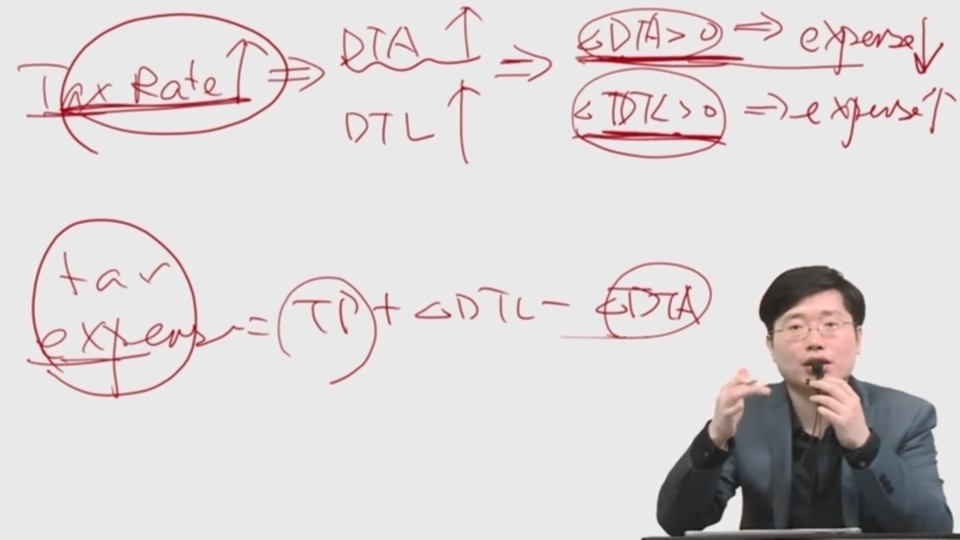 Tax Rate↑ ⇒ DTA ↑ ⇒ △DTA>0 ⇒ expense↓
DTL ↑ △DTL>0 ⇒ expense↑
tax
expense = TP + △DTL - △DTA